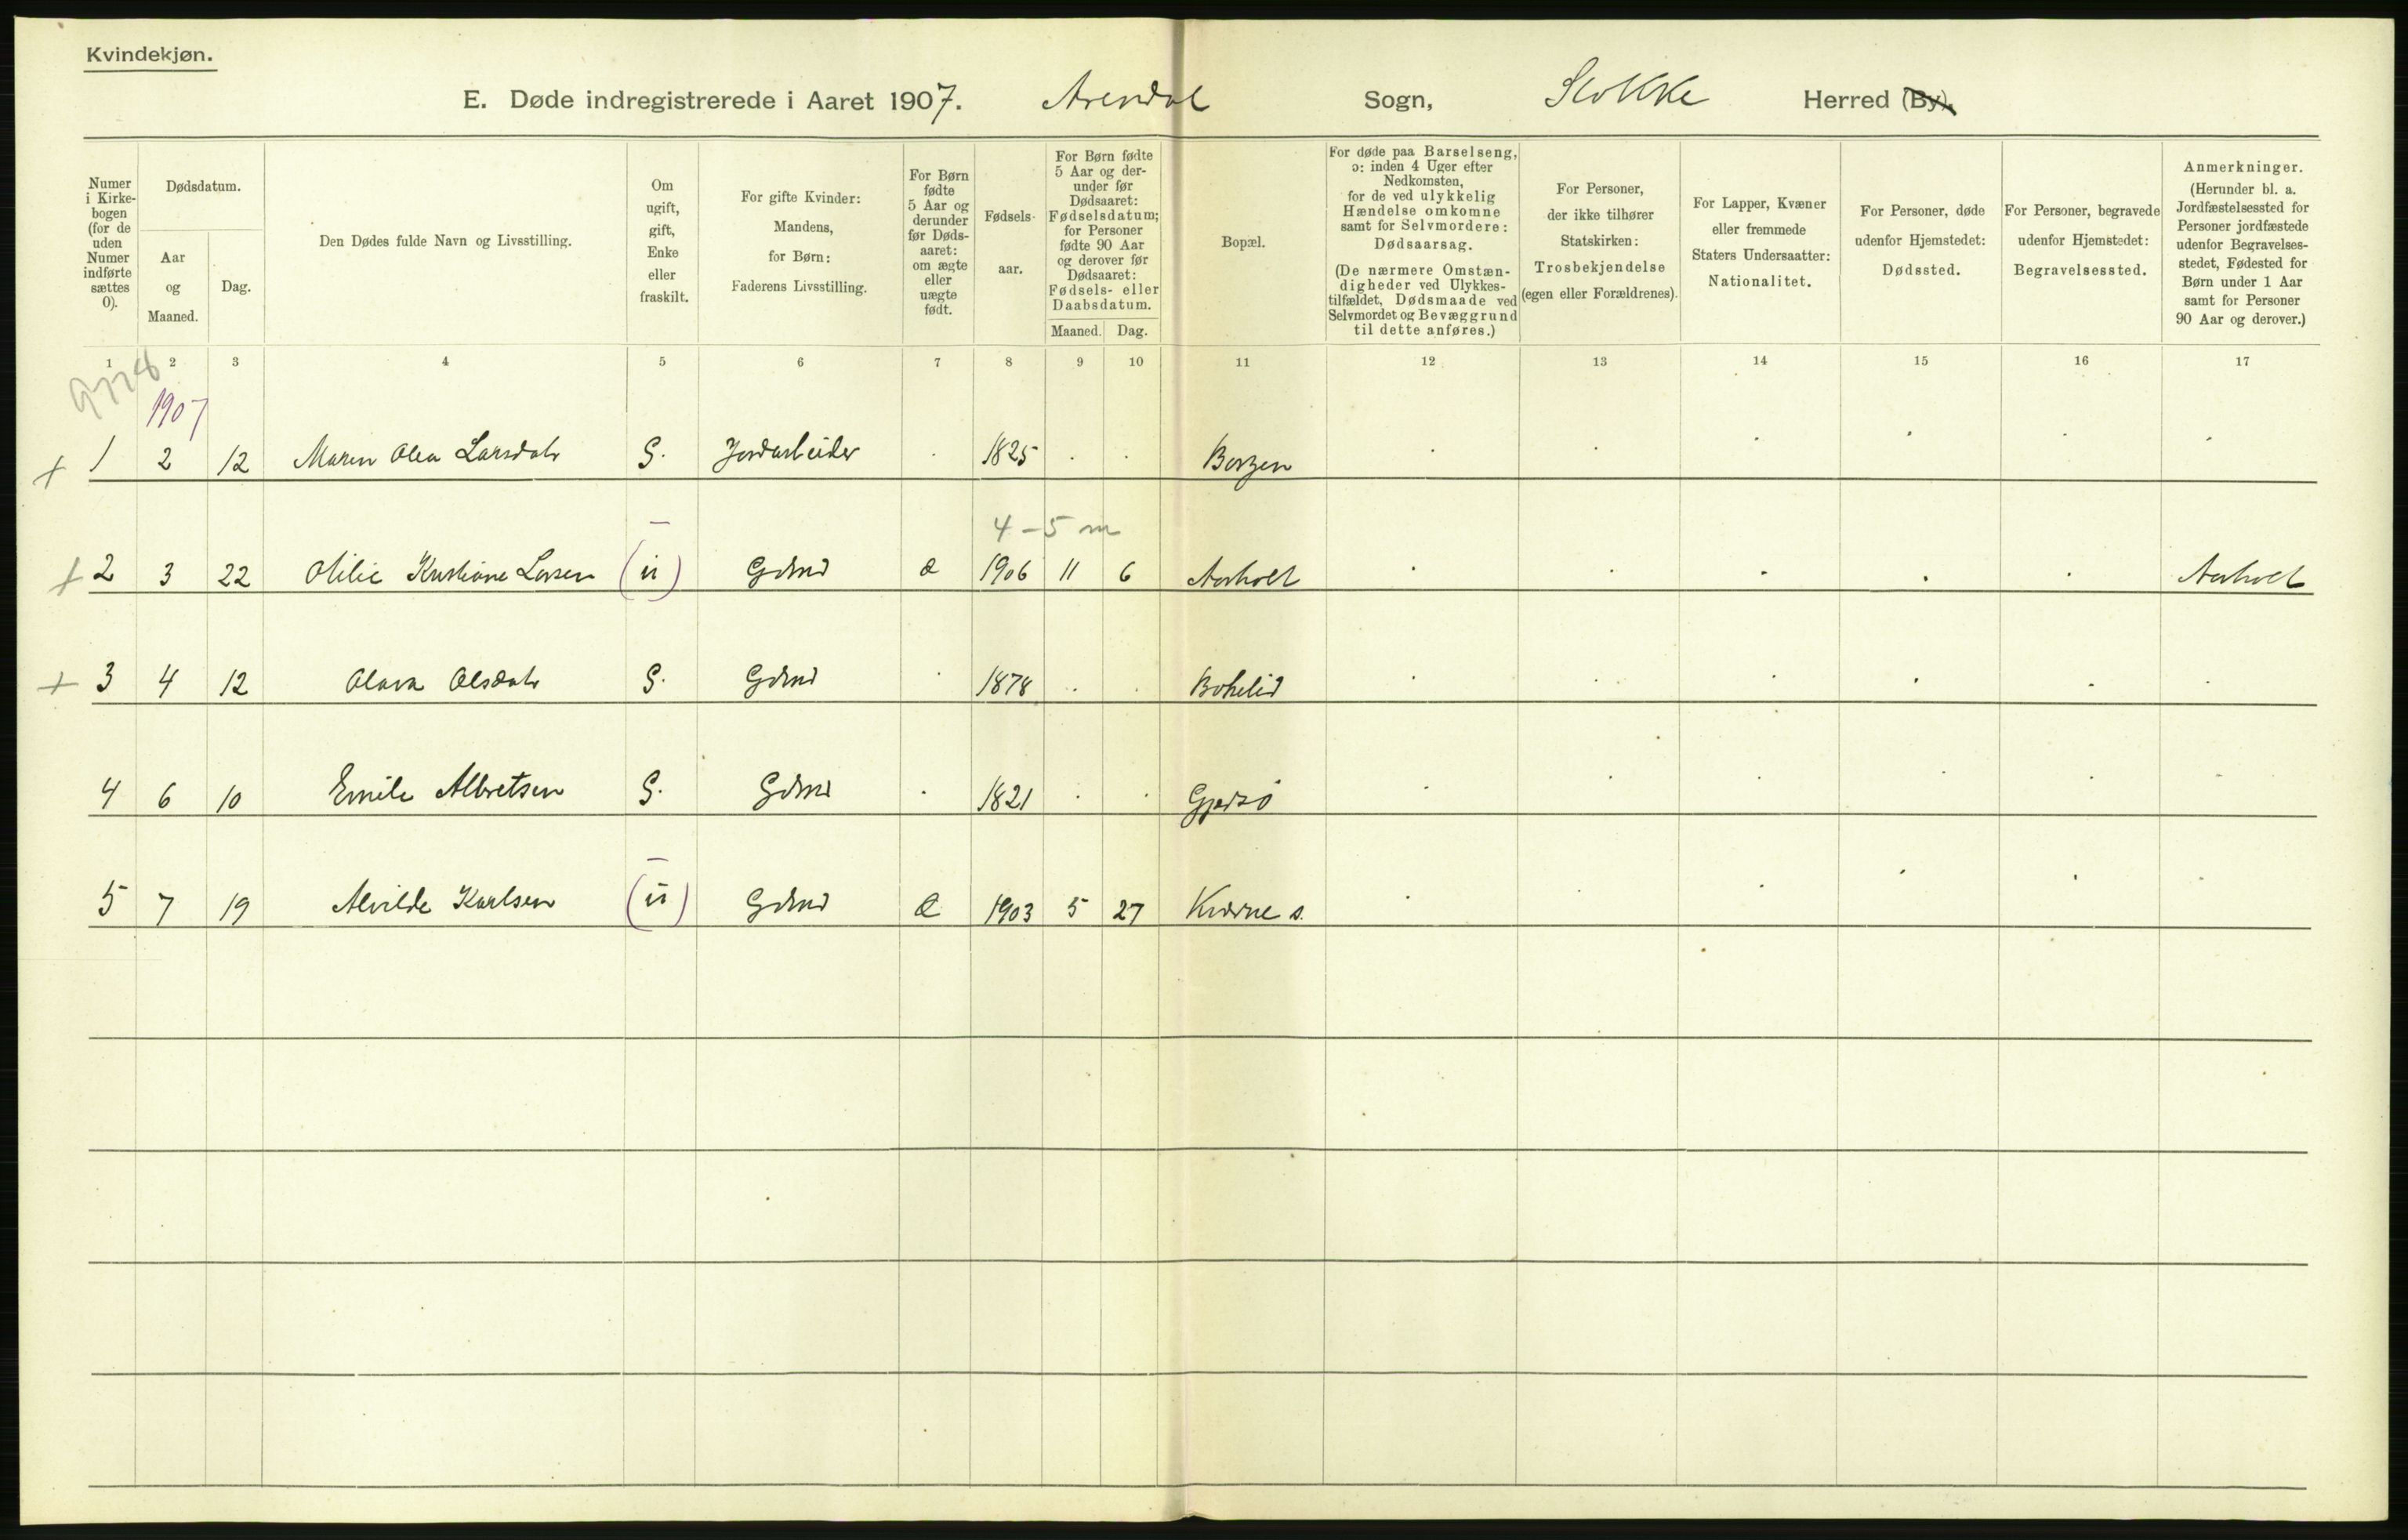 Kvindekjøn.
E. Døde indregistrerede i Aaret 1907. Arendal Sogn, Stokke Herred (By).
Numer i Kirke-bogen (for de uden Numer indførte sættes 0).
Dødsdatum.
Aar og Maaned.
Dag.
Den Dødes fulde Navn og Livsstilling.
Om ugift, gift, Enke eller fraskilt.
For gifte Kvinder: Mandens, for Børn: Faderens Livsstilling.
For Børn fødte 5 Aar og derunder før Døds-aaret: om ægte eller uægte født.
Fødsels-aar.
For Børn fødte 5 Aar og der-under før Dødsaaret: Fødselsdatum; for Personer fødte 90 Aar og derover før Dødsaaret: Fødsels- eller Daabsdatum.
Maaned. Dag.
Bopæl.
For døde paa Barselseng, ɔ: inden 4 Uger efter Nedkomsten, for de ved ulykkelig Hændelse omkomne samt for Selvmordere: Dødsaarsag. (De nærmere Omstæn-digheder ved Ulykkes-tilfældet, Dødsmaade ved Selvmordet og Bevæggrund til dette anføres.)
For Personer, der ikke tilhører Statskirken: Trosbekjendelse (egen eller Forældrenes).
For Lapper, Kvæner eller fremmede Staters Undersaatter: Nationalitet.
For Personer, døde udenfor Hjemstedet: Dødssted.
For Personer, begravede udenfor Hjemstedet: Begravelsessted.
Anmerkninger. (Herunder bl. a. Jordfæstelsessted for Personer jordfæstede udenfor Begravelses-stedet, Fødested for Børn under 1 Aar samt for Personer 90 Aar og derover.)
1 2 3 4 5 6 7 8 9 10 11 12 13 14 15 16 17
1907
+ 1 2 12 Maren Olea Larsdatr G. Jordarbeider 1825 Borgen
4-5 m
+ 2 3 22 Otilie Kristiane Larsen (ü) Gdmd Æ 1906 11 6 Aarholt Aarholt
+ 3 4 12 Olava Olsdatr G. Gdmd 1878
4 6 10 Emile Albretsen G. Gdmd 1821
5 7 19 Alvilde Karlsen (ü) Gdmd Æ 1903 5 27 Kværne s.